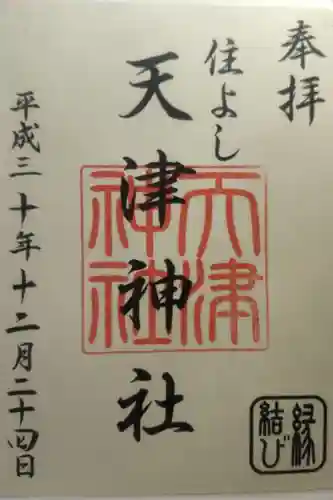 奉拝
住よし
天津神社
天津神社
平成三十年十二月二十四日
縁結び